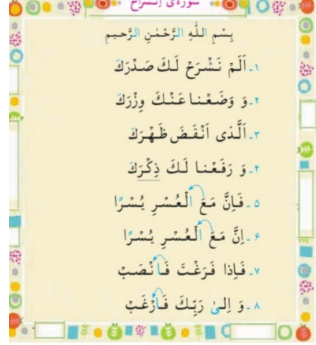 سوره‌ی اِنشراح
بِسْمِ اللّٰهِ الرَّحْمٰنِ الرَّحیمِ
۱ـ اَلَمْ نَشْرَحْ لَـكَ صَدْرَكَ
۲ـ وَ وَضَعْنا عَنْكَ وِزْرَكَ
۳ـ اَلَّذی اَنْقَضَ ظَهْرَكَ
۴ـ وَ رَفَعْنا لَكَ ذِكْرَكَ
۵ ـ فَاِنَّ مَعَ الْعُسْرِ یُسْرًا
۶ ـ اِنَّ مَعَ الْعُسْرِ یُسْرًا
۷ـ فَاِذا فَرَغْتَ فَانْصَبْ
۸ ـ وَ اِلیٰ رَبِّكَ فَارْغَبْ